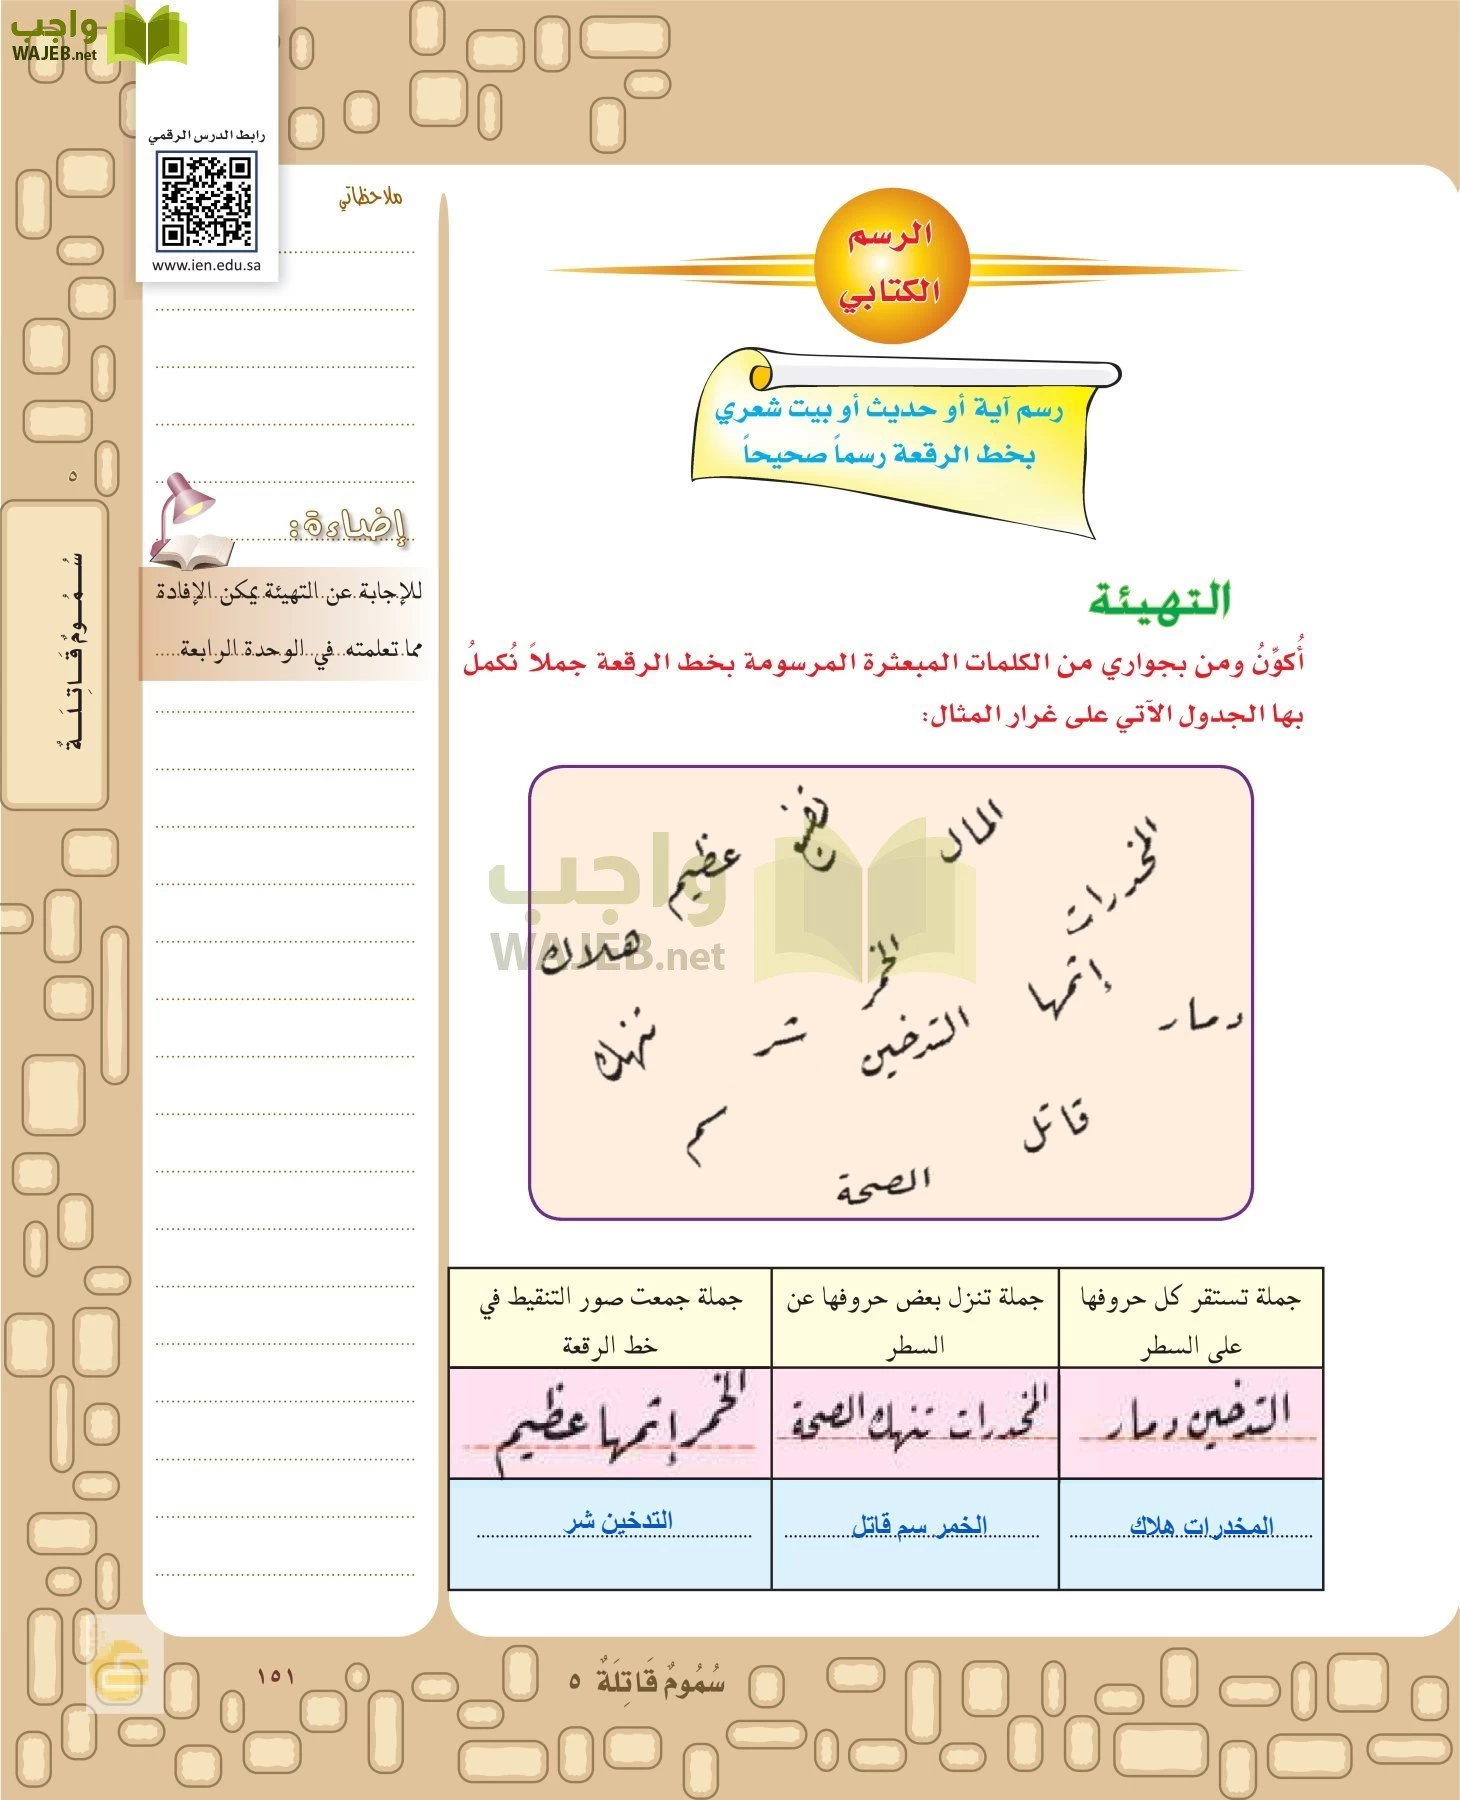 واجب
WAJEB.net
رابط الدرس الرقمي
www.ien.edu.sa
ملاحظاتي
الرسم
الكتابي
رسم آية أو حديث أو بيت شعري
بخط الرقعة رسماً صحيحاً
إضاءة:
للإجابة عن التهيئة يمكن الإفادة
مما تعلمته في الوحدة الرابعة
٥
سُمُومٌ قَاتِلَةٌ
التهيئة
أُكوِّنُ ومن بجواري من الكلمات المبعثرة المرسومة بخط الرقعة جملاً نُكملُ
بها الجدول الآتي على غرار المثال:
المخدرات
المال
تضيع
عظيم
هلاك
الخمر
إثمها
دمار
التدخين
شر
تنهك
قاتل
سم
الصحة
واجب
WAJEB.net
جملة تستقر كل حروفها
على السطر
جملة تنزل بعض حروفها عن
السطر
جملة جمعت صور التنقيط في
خط الرقعة
التدخين دمار
المخدرات تنهك الصحة
الخمر إثمها عظيم
المخدرات هلاك
الخمر سم قاتل
التدخين شر
سُمُومٌ قَاتِلَةٌ ٥
١٥١